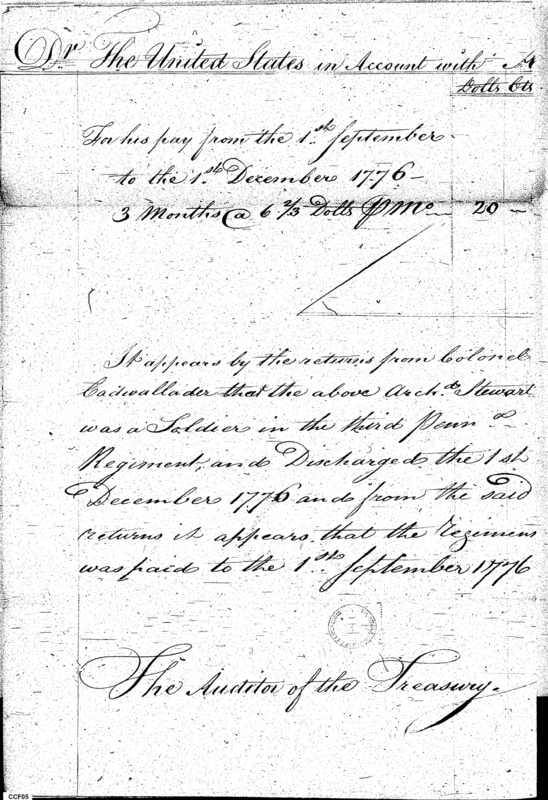 Dr. The United States in Account with A
Dolls Cts
For his pay from the 1.st September
to the 1.st December 1776 —
3 Months @ 6 2/3 Dolls P Mo — 20 —
It appears by the returns from Colonel
Cadwallader that the above Arch.d Stewart
was a Soldier in the third Penn.a
Regiment, and Discharged the 1st
December 1776 and from the said
returns it appears that the Regiment
was paid to the 1.st September 1776
The Auditor of the Treasury.
CCF05